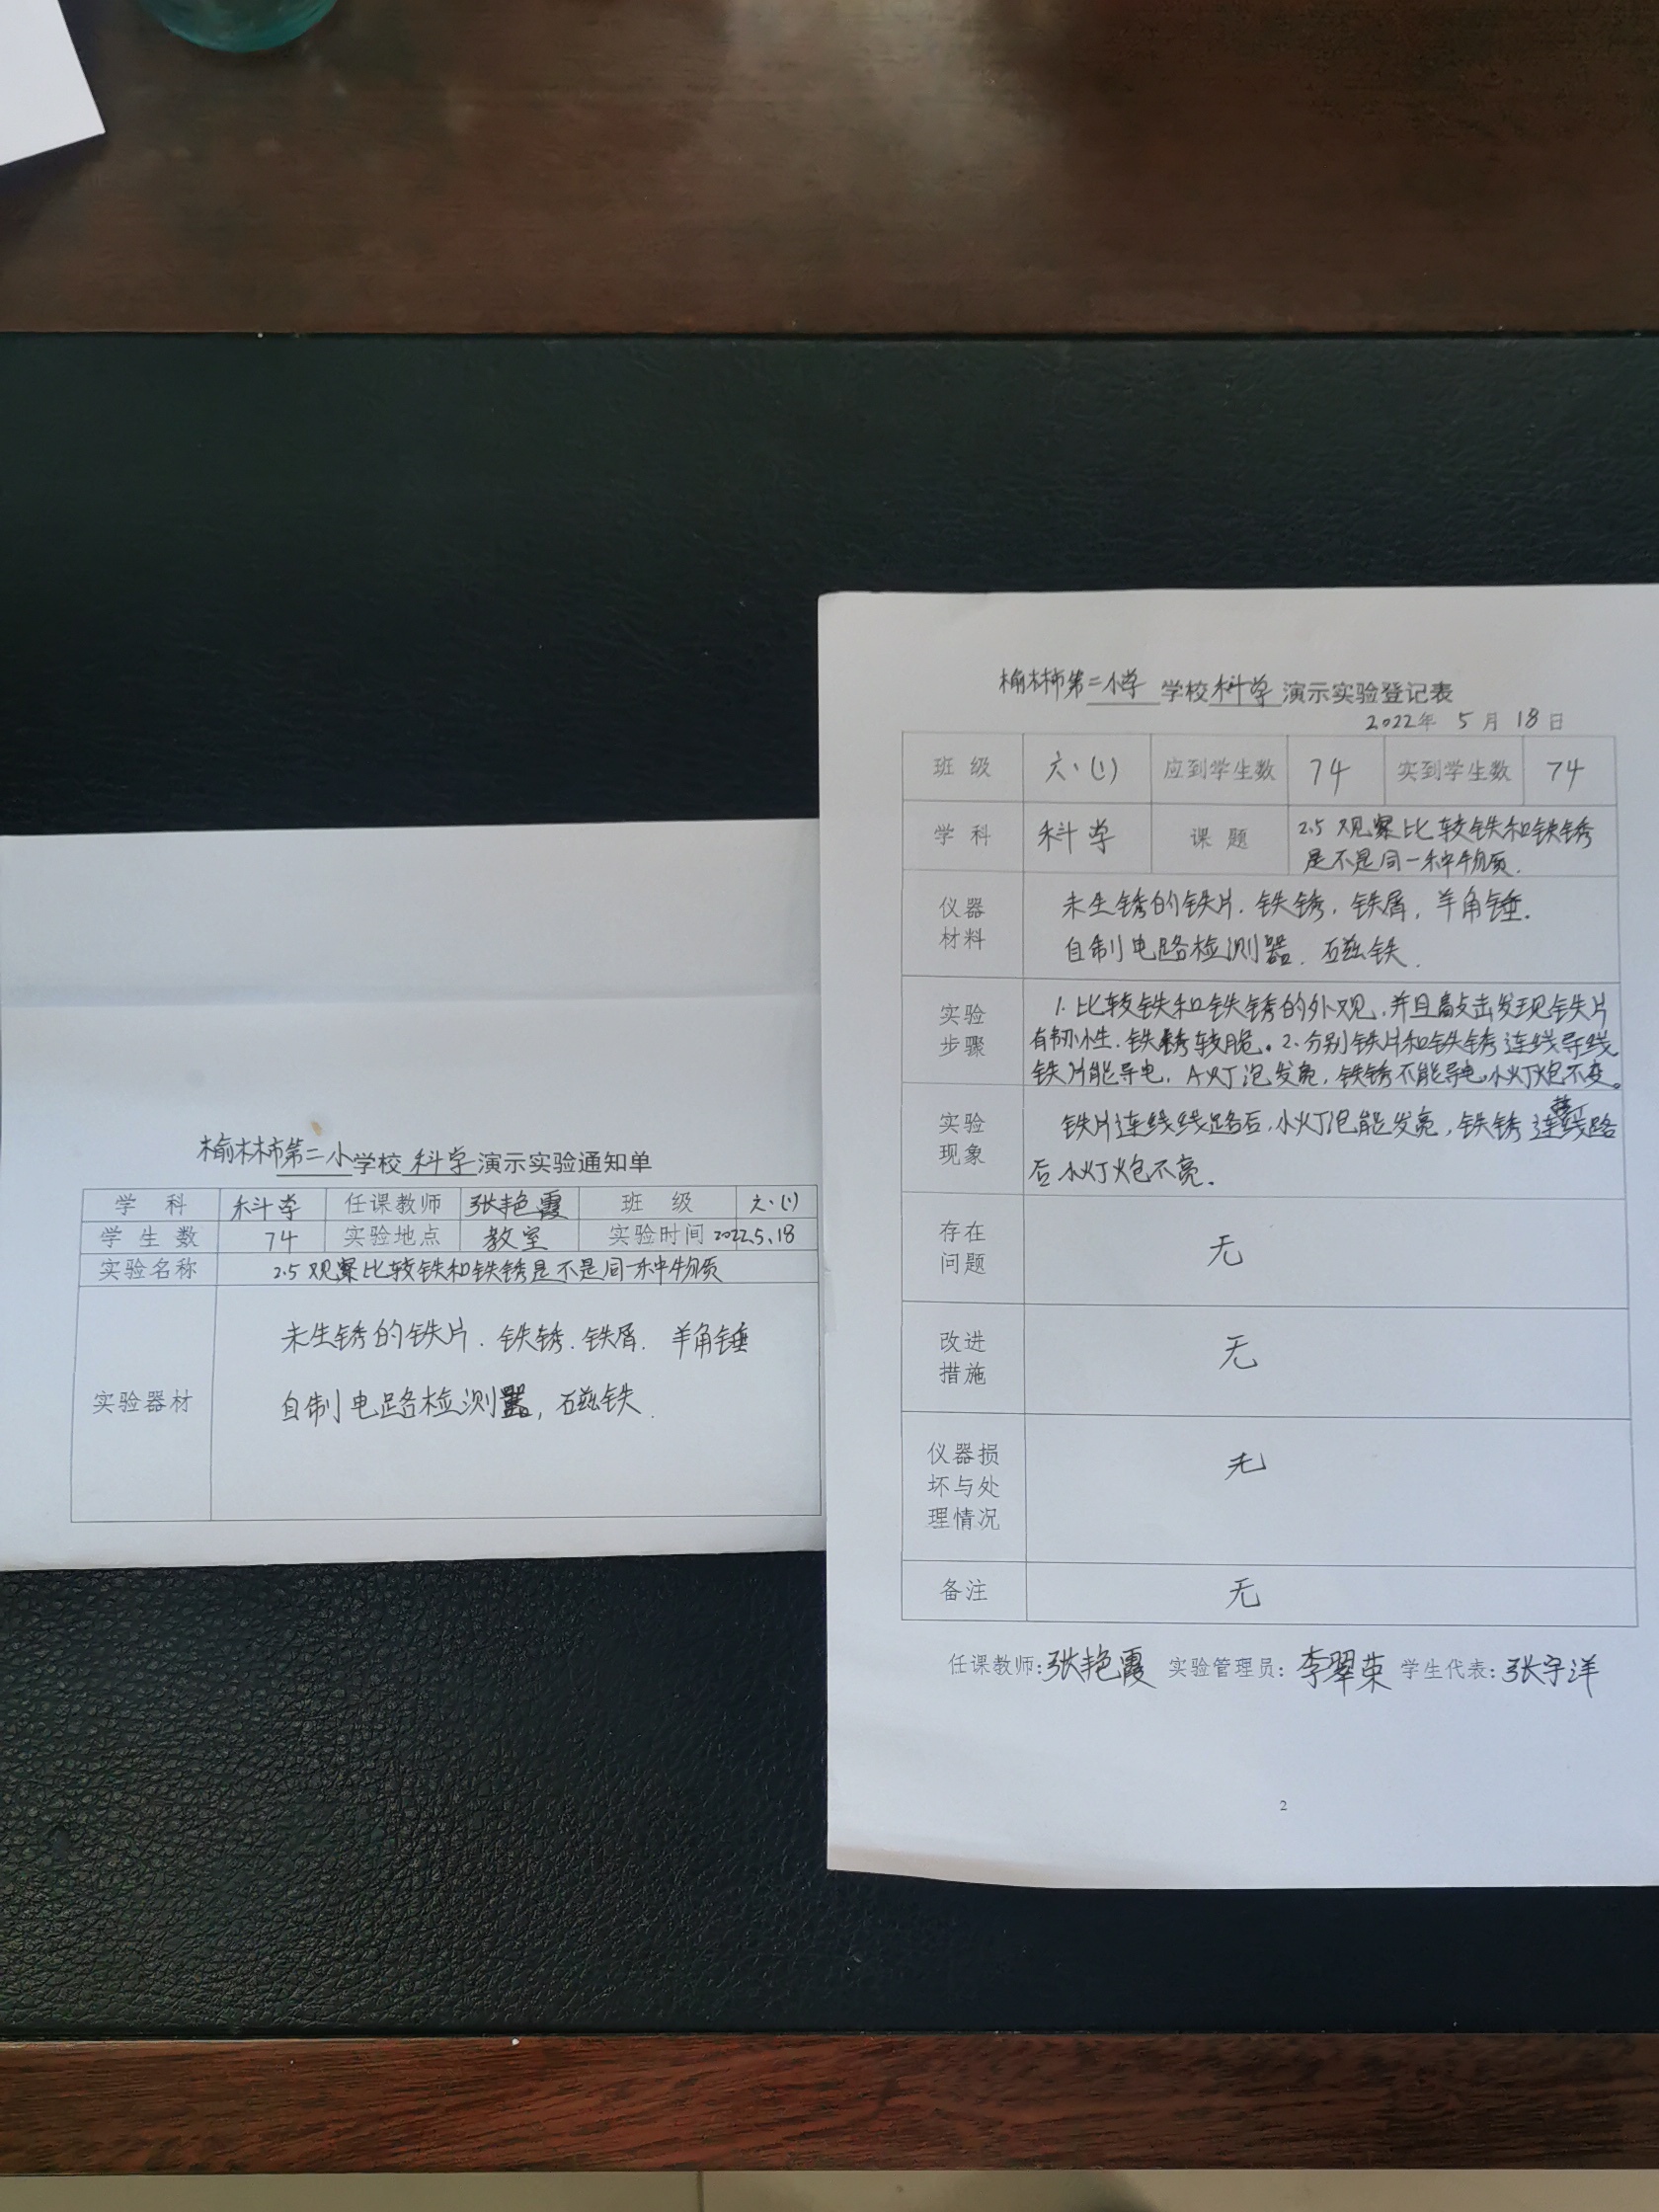 榆林市第二小学校科学演示实验通知单
学 科 科学 任课教师 张艳霞 班 级 六·(1)
学 生 数 74 实验地点 教室 实验时间 2022.5.18
实验名称 2.5 观察比较铁和铁锈是不是同一种物质
未生锈的铁片. 铁锈. 铁屑. 羊角锤
实验器材
自制电路检测器, 石磁铁.
榆林市第二小学 学校 科学 演示实验登记表
2022年 5 月 18 日
班 级 六·(1) 应到学生数 74 实到学生数 74
学 科 科学 课 题 2.5 观察比较铁和铁锈
是不是同一种物质.
仪器 未生锈的铁片. 铁锈, 铁屑, 羊角锤.
材料 自制电路检测器. 石磁铁.
实验
步骤
1. 比较铁和铁锈的外观,并且敲击发现铁片
有韧性. 铁锈较脆。2.分别铁片和铁锈连线导线
铁片能导电, 灯泡发亮, 铁锈不能导电,小灯炮不变。
实验
现象
铁片连线线路后,小灯泡能发亮, 铁锈连线路
后小灯炮不亮.
存在
问题
无
改进
措施
无
仪器损
坏与处
理情况
无
备注 无
任课教师: 张艳霞 实验管理员: 李翠荣 学生代表: 张宇洋
2